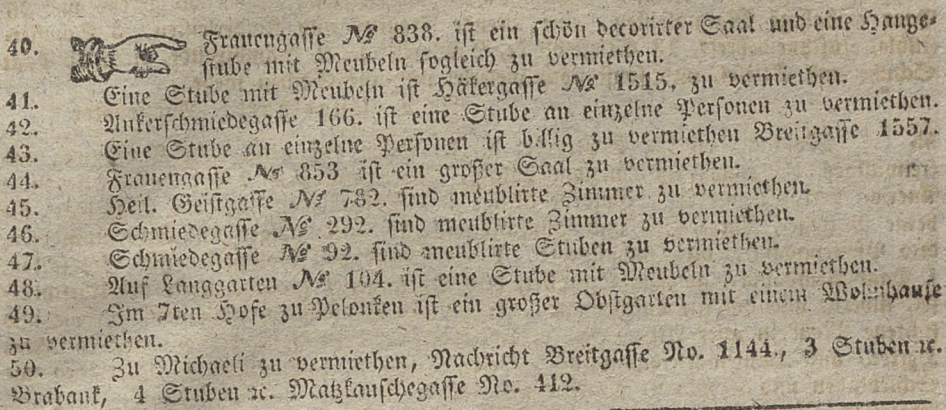 40. Frauengasse № 838. ist ein schön decorirter Saal und eine Hange-
stube mit Meubeln sogleich zu vermiethen.
41. Eine Stube mit Meubeln ist Häkergasse № 1515. zu vermiethen.
42. Ankerschmiedegasse 166. ist eine Stube an einzelne Personen zu vermiethen.
43. Eine Stube an einzelne Personen ist billig zu vermiethen Breitgasse 1557.
44. Frauengasse № 853 ist ein großer Saal zu vermiethen.
45. Heil. Geistgasse № 782. sind meublirte Zimmer zu vermiethen.
46. Schmiedegasse № 292. sind meublirte Zimmer zu vermiethen.
47. Schmiedegasse № 92. sind meublirte Stuben zu vermiethen.
48. Auf Langgarten № 104. ist eine Stube mit Meubeln zu vermiethen.
49. Im 7ten Hofe zu Pelonken ist ein großer Obstgarten mit einem Wohnhause
zu vermiethen.
50. Zu Michaeli zu vermiethen, Nachricht Breitgasse No. 1144., 3 Stuben ꝛc.
Brabank, 4 Stuben ꝛc. Matzkauschegasse No. 412.